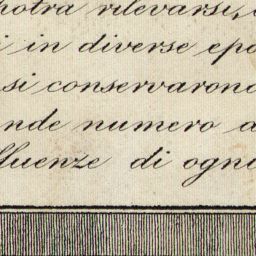 potra rilevarsi,
i in diverse epo
si conservarono
nde numero a
fluenze di ogni